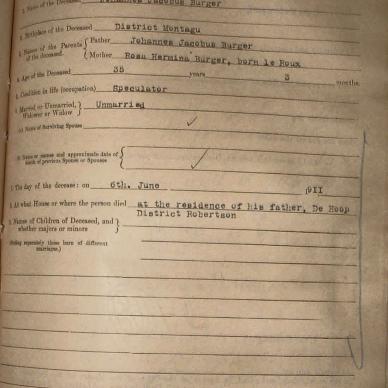 Name of the Deceased Johannes Jacobus Burger
Birthplace of the Deceased District Montagu
Names of the Parents of the deceased. { Father Johannes Jacobus Burger
Mother Rosa Hermina Burger, born le Roux
Age of the Deceased 35 years 3 months.
Condition in life (occupation) Speculator
Married or Unmarried, Widower or Widow } Unmarried
(a) Name of Surviving Spouse ✓
(b) Name or names and approximate date of death of previous Spouse or Spouses { ✓
The day of the decease: on 6th. June 1911
At what House or where the person died at the residence of his father, De Hoop
District Robertson
Names of Children of Deceased, and whether majors or minors }
(Stating separately those born of different marriages.)